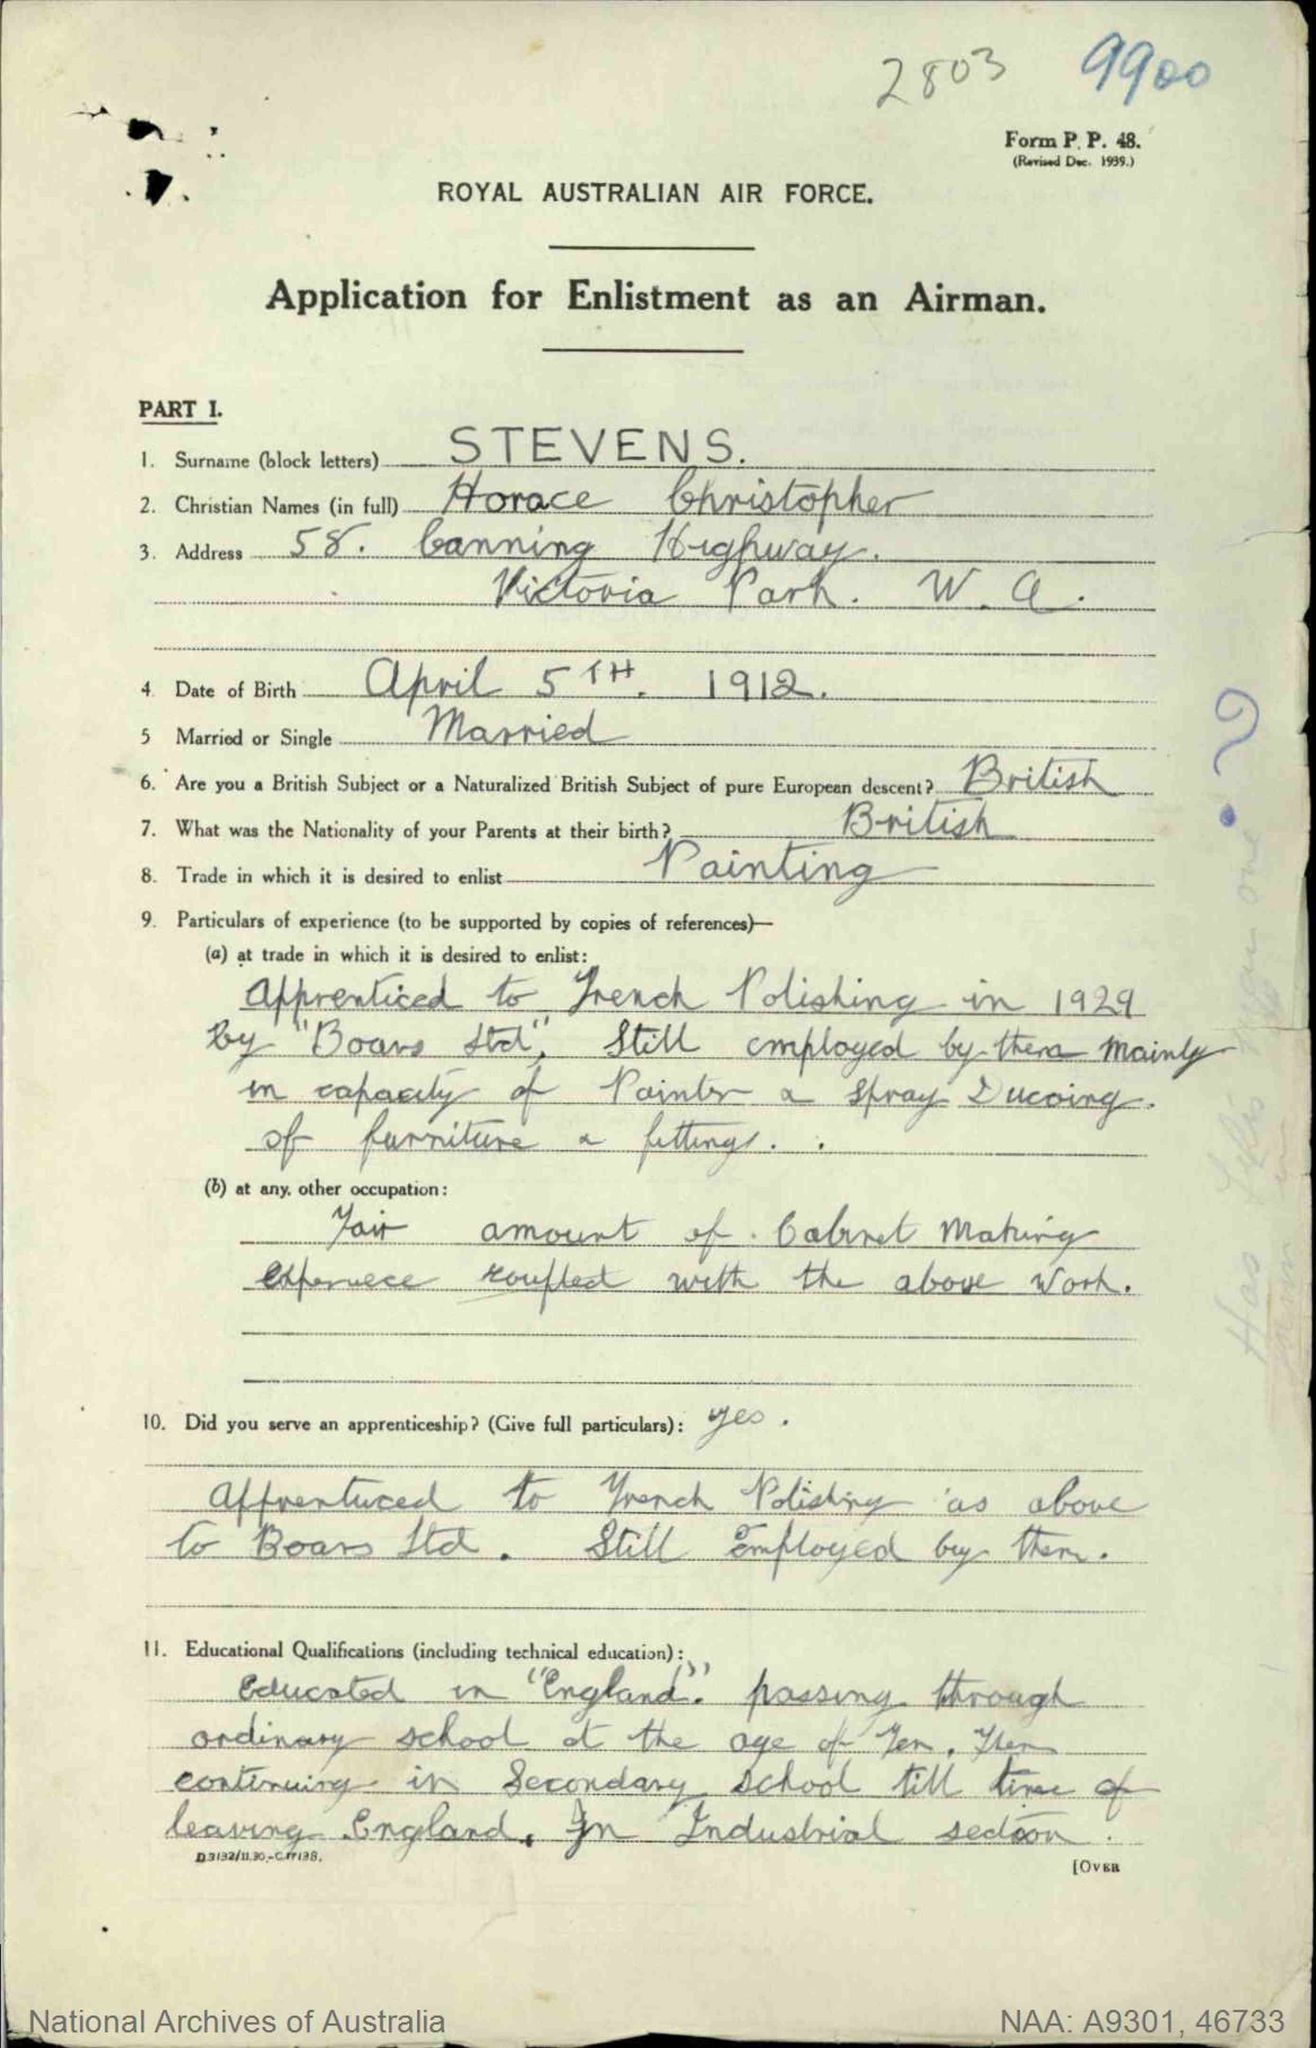 2803 9900
Form P. P. 48.
(Revised Dec. 1939.)
ROYAL AUSTRALIAN AIR FORCE.
Application for Enlistment as an Airman.
PART I.
1. Surname (block letters) STEVENS.
2. Christian Names (in full) Horace Christopher
3. Address 58. Canning Highway.
Victoria Park. W. A.
4. Date of Birth April 5TH. 1912.
5 Married or Single Married
6. Are you a British Subject or a Naturalized British Subject of pure European descent? British
7. What was the Nationality of your Parents at their birth? British
8. Trade in which it is desired to enlist Painting
9. Particulars of experience (to be supported by copies of references)—
(a) at trade in which it is desired to enlist:
Apprenticed to French Polishing in 1929
by "Boans Ltd", Still employed by them mainly
in capacity of Painter & Spray Ducoing.
of furniture & fittings.
(b) at any other occupation:
Fair amount of Cabinet Making
experiece coupled with the above Work.
10. Did you serve an apprenticeship? (Give full particulars): yes.
Apprenticed to French Polishing as above
to Boans Ltd. Still Employed by them.
11. Educational Qualifications (including technical education):
Educated in "England". passing through
ordinary school at the age of Ten. Then
continuing in Secondary School till time of
leaving England. In Industrial section.
[OVER
National Archives of Australia NAA: A9301, 46733